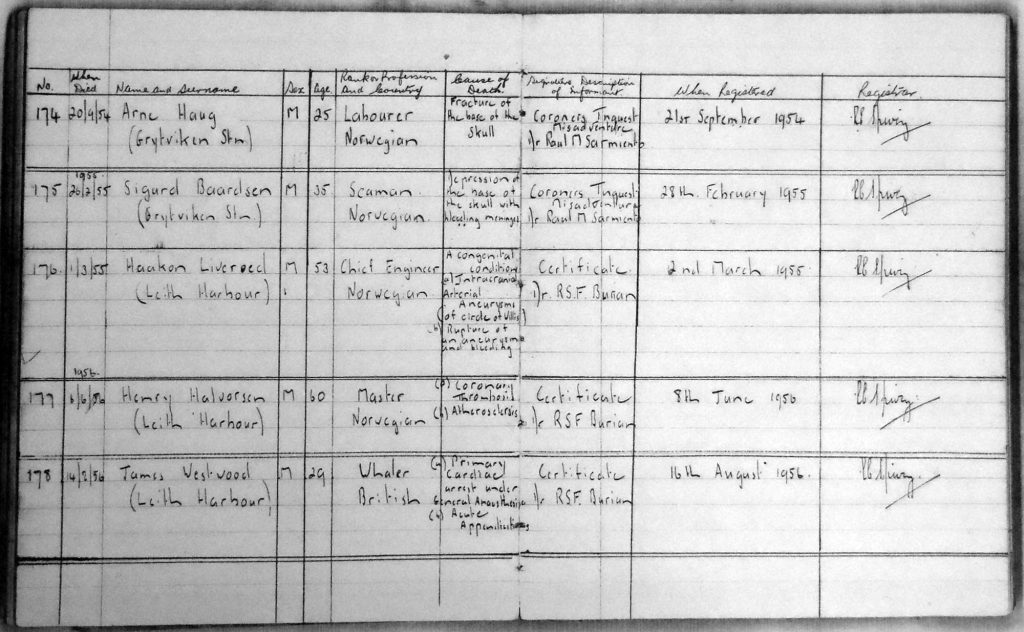 No. When Died Name and Surname Sex Age Rank or Profession and Country Cause of Death Signature Description of Informant When Registered Registrar.
174 20/9/54 Arne Haug M 25 Labourer Fracture of Coroners Inquest 21st September 1954
(Grytviken Stn) Norwegian the base of the Misadventure
skull Dr Raul M Sarmiento
1955
175 26/2/55 Sigurd Baardsen M 35 Seaman Depression of Coroners Inquest 28th. February 1955
(Grytviken Stn) Norwegian. the base of Misadventure
the skull with Dr Raul M Sarmiento
bleeding meninges
176. 1/3/55 Haakon Liveroed M 53 Chief Engineer A congenital Certificate. 2nd March 1955
(Leith Harbour) Norwegian condition Dr. RSF. Burian
a) Intracranial
Arterial
Aneurysms
(of circle of Willis)
(b) Rupture of
an aneurysm
and bleeding
1956
177 6/6/56 Henry Halvorsen M 60 Master (a) Coronary Certificate 8th June 1956
(Leith Harbour) Norwegian Thrombosis Dr RSF Burian
(b) Atherosclerosis
178 James Westwood M 29 Whaler (a) Primary Certificate 16th August 1956.
(Leith Harbour) British Cardiac Dr RSF. Burian
arrest under
General Anaesthesia
(b) Acute
Appendicitis